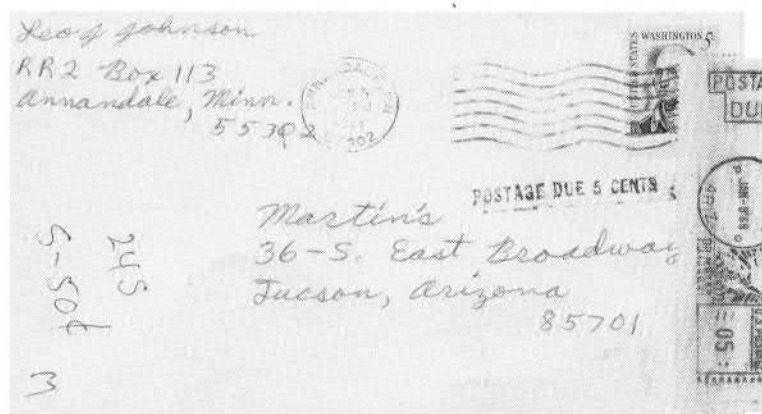 Leo J Johnson
RR2 Box 113
Annandale, Minn.
55302
202
UNITED STATES
WASHINGTON 5
POSTAGE DUE 5 CENTS
POSTA
DUE
JAN-8'68
ARIZ
05
Martin's
36-S. East Broadway
Tucson, Arizona
85701
245
5-50¢
3